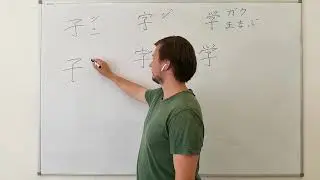 子 シ 字 ジ 学 ガク
まなぶ
子 字 学